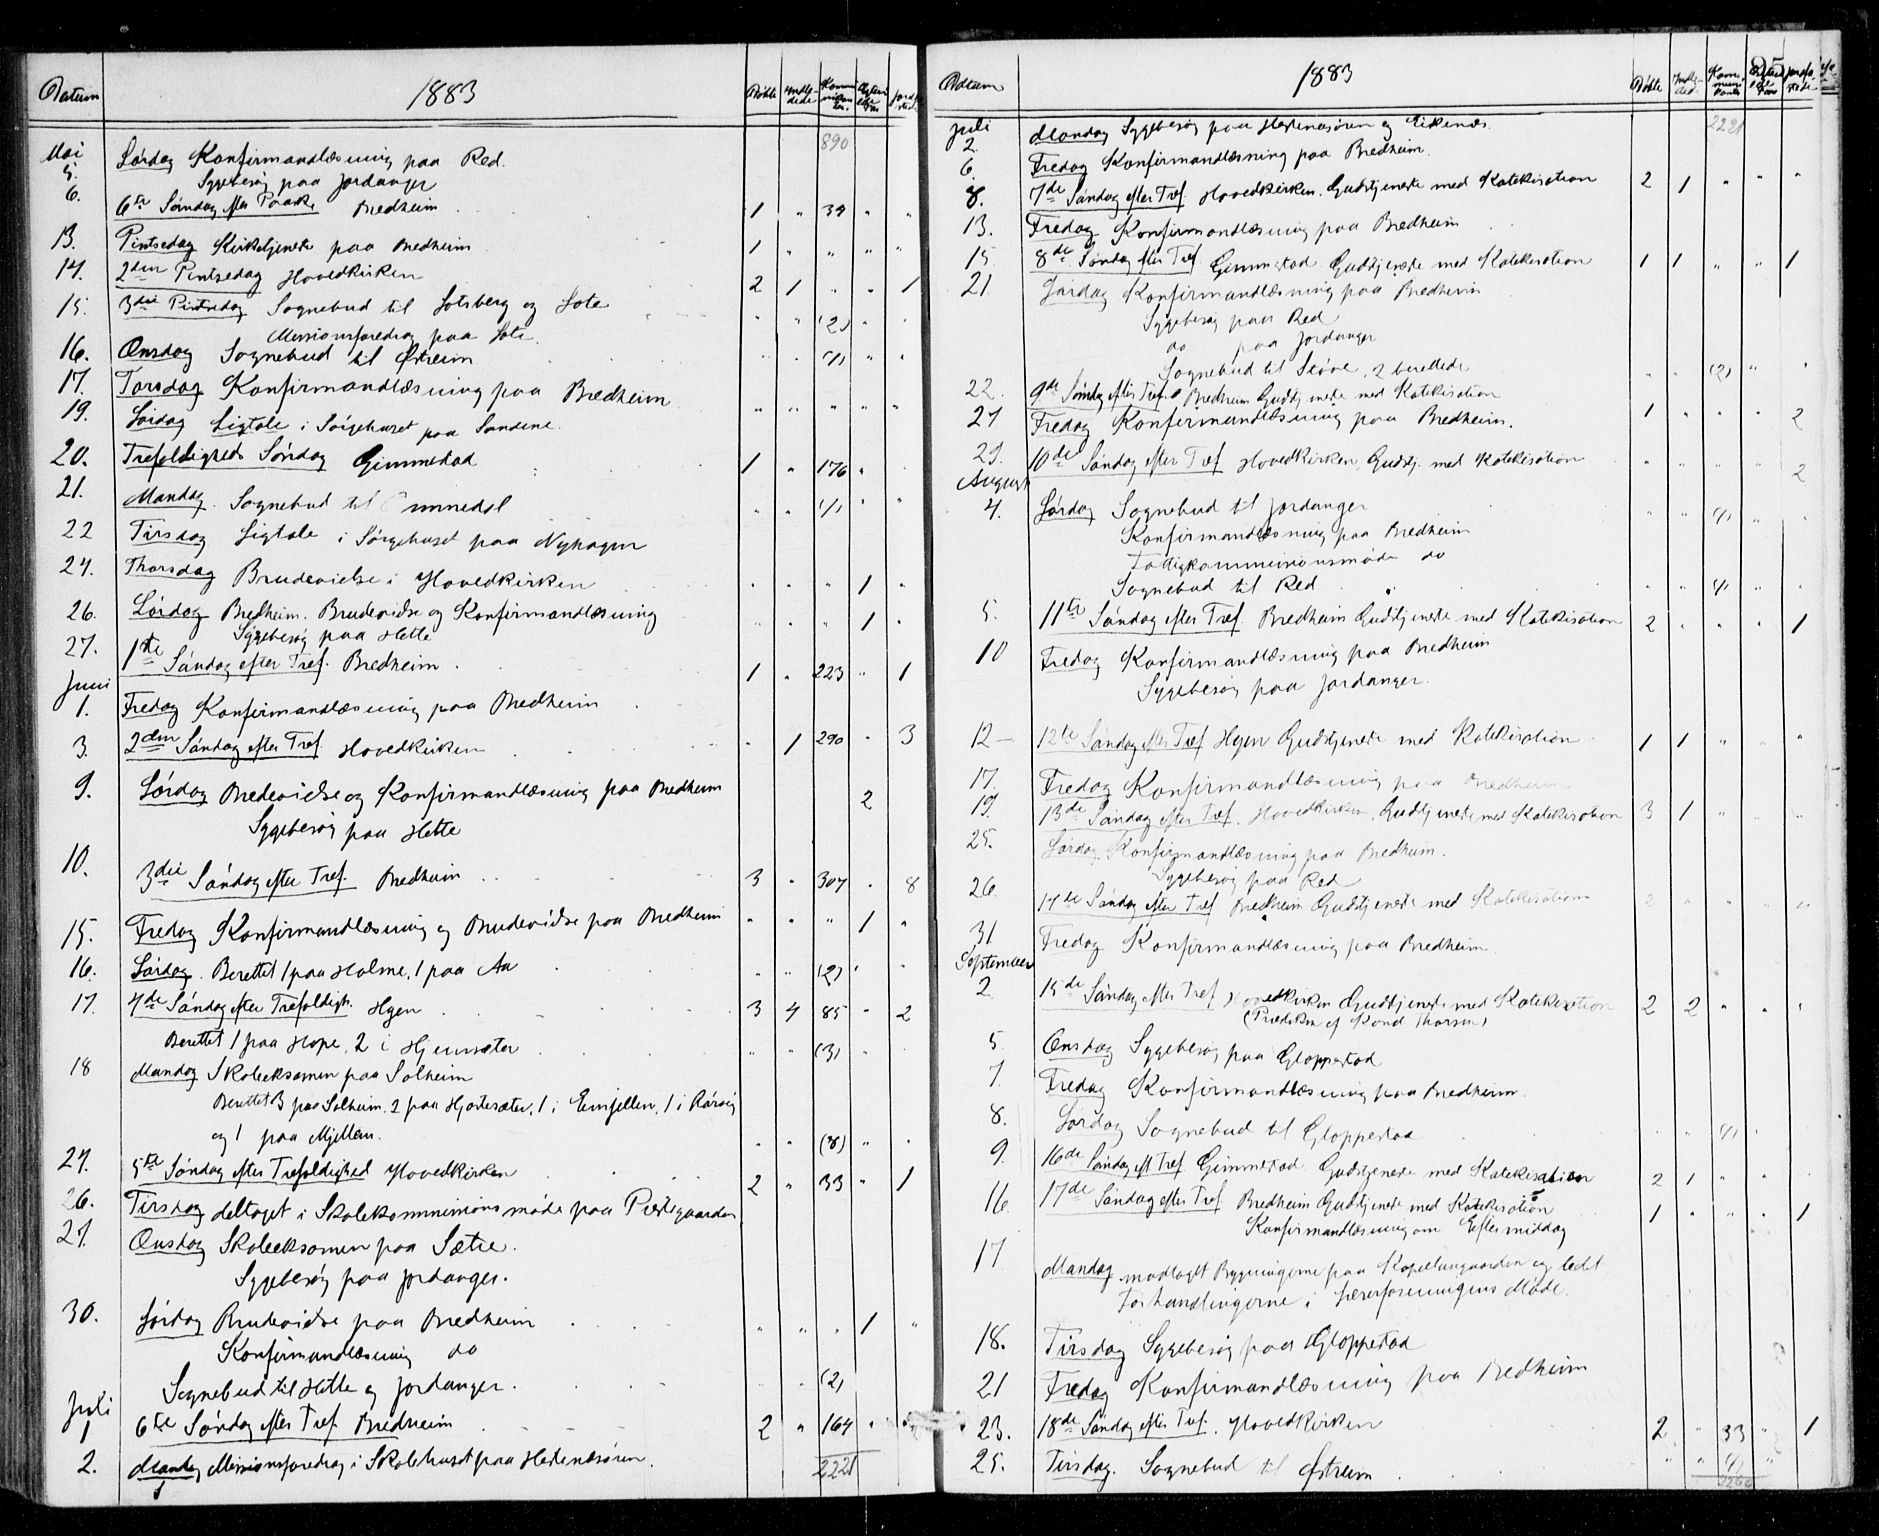 Datum 1883 Døbte Indledede Kommunikanter. Jordf.
890
Mai
5. Lørdag Konfirmandlæsning paa Red.
Sygebesøg paa Jordanger
6. 6te Søndag efter Paaske Bredheim 1 " 39 " "
13. Pintsedag Kirketjeneste paa Bredheim 1 " " " "
14. 2den Pintsedag Hovedkirken 2 1 " " 1
15. 3die Pintsedag Sognebud til Sotsberg og Sote " " (2) " "
Missionsforedrag paa Sote.
16. Onsdag Sognebud til Østreim " " (1) " "
17. Torsdag Konfirmandlæsning paa Bredheim
19. Lørdag Ligtale i Sørgehuset paa Sandene. " " " " "
20. Trefoldigheds Søndag Gimmestad 1 " 176 "
21. Mandag. Sognebud til " " (1) " "
22 Tirsdag Ligtale i Sørgehuset paa Nyhagen
24. Thorsdag Brudevielse i Hovedkirken " " " 1 "
26. Lørdag Bredheim. Brudevielse og Konfirmandlæsning " " " 1 "
Sygebesøg paa Hette
27. 1ste Søndag efter Tref. Bredheim 1 " 223 " 1
Juni
1. Fredag Konfirmandlæsning paa Bredheim
3. 2den Søndag efter Tref. Hovedkirken " 1 290 " 3
9. Lørdag Brudevielse og Konfirmandlæsning paa Bredheim 2
Sygebesøg paa Hette
10. 3die Søndag efter Tref. Bredheim 3 " 307 " 8
15. Fredag Konfirmandlæsning og Brudevielse paa Bredheim " " " 1 "
16. Lørdag. Berettet 1 paa Holme, 1 paa Aa " " (2) " "
17. 4de Søndag efter Trefoldigh. Hyen 3 4 85 " 2
Berettet 1 paa Hope, 2 i Hjemsæter " " (3) "
18 Mandag Skoleeksamen paa Solheim
Berettet 3 paa Solheim, 2 paa Hjortesæter, 1 i Eimfellen, 1 i Rørvig
og 1 paa Mjellem. " " (8) " "
24. 5te Søndag efter Trefoldighed Hovedkirken 2 " 33 " 1
26. Tirsdag deltaget i Skolekommissionsmøde paa Præstegaarden
27. Onsdag Skoleeksamen paa Sætre.
Sygebesøg paa Jordanger.
30. Lørdag Brudevielse paa Bredheim " " " 1 "
Konfirmandlæsning do
Sognebud til Hette og Jordanger. " " (2)
Juli
1 6te Søndag efter Tref. Bredheim 2 " 164 " "
2. Mandag Missionsforedrag i Skolehuset paa Hestenesøren. 2221
Datum 1883 95 Døbte Indled. Kommunikanter
Juli 2221
2. Mandag Sygebesøg paa Hestenesøren og Eikenæs.
6. Fredag Konfirmandlæsning paa Bredheim.
8. 7de Søndag efter Tref. Hovedkirken. Gudstjeneste med Katekisation 2 1 " " "
13. Fredag Konfirmandlæsning paa Bredheim
15. 8de Søndag efter Tref. Gimmestad Gudstjeneste med Katekisation 1 1 " " 1
21. Lørdag Konfirmandlæsning paa Bredheim
Sygebesøg paa Red
do paa Jordanger
Sognebud til Støve, 2 berettede " " (2) " "
22. 9de Søndag efter Tref. Bredheim Gudstjeneste med Katekisation 1 " " " 2
27 Fredag Konfirmandlæsning paa Bredheim.
29. 10de Søndag efter Tref Hovedkirken, Gudstj. med Katekisation " " " " 2
August
4. Lørdag Sognebud til Jordanger " " (1) " "
Konfirmandlæsning paa Bredheim
Fattigkommissionsmøde do
Sognebud til Red " " (1) " "
5. 11te Søndag efter Tref. Bredheim Gudstjeneste med Katekisation 2 " " " 1
10 Fredag Konfirmandlæsning paa Bredheim
Sygebesøg paa Jordanger.
12 – 12te Søndag efter Tref Hyen Gudstjeneste med Katekisation 1 1 " " "
17. Fredag Konfirmandlæsning paa Bredheim
19. 13de Søndag efter Tref. Hovedkirken. Gudstjeneste med Katekisation 3 1 " " "
25. Lørdag. Konfirmandlæsning paa Bredheim.
Sygebesøg paa Red
26. 14de Søndag efter Tref Bredheim Gudstjeneste med Katekisation 2 " " " "
31 Fredag Konfirmandlæsning paa Bredheim.
September
2. 15de Søndag efter Tref Hovedkirken Gudstjeneste med Katekisation 2 2 " " "
(Prædiken af Kand Thorsen)
5. Onsdag Sygebesøg paa Gloppestad
7. Fredag Konfirmandlæsning paa Bredheim.
8. Lørdag Sognebud til Gloppestad " " (1) "
9. 16de Søndag eft Tref Gimmestad Gudstjeneste med Katekisation 2 1 " "
16. 17de Søndag efter Tref Bredheim Gudstjeneste med Katekisation 1 " " " 1
Konfirmandlæsning om Eftermiddag
17 Mandag modtaget Bygningerne paa Kapellangaarden og ledet
Forhandlingerne i Lærerforeningens Møde.
18. Tirsdag Sygebesøg paa Gloppestad
21 Fredag Konfirmandlæsning paa Bredheim
23. 18de Søndag efter Tref. Hovedkirken 2 " 33 " 1
25. Tirsdag. Sognebud til Østreim " " (1) "